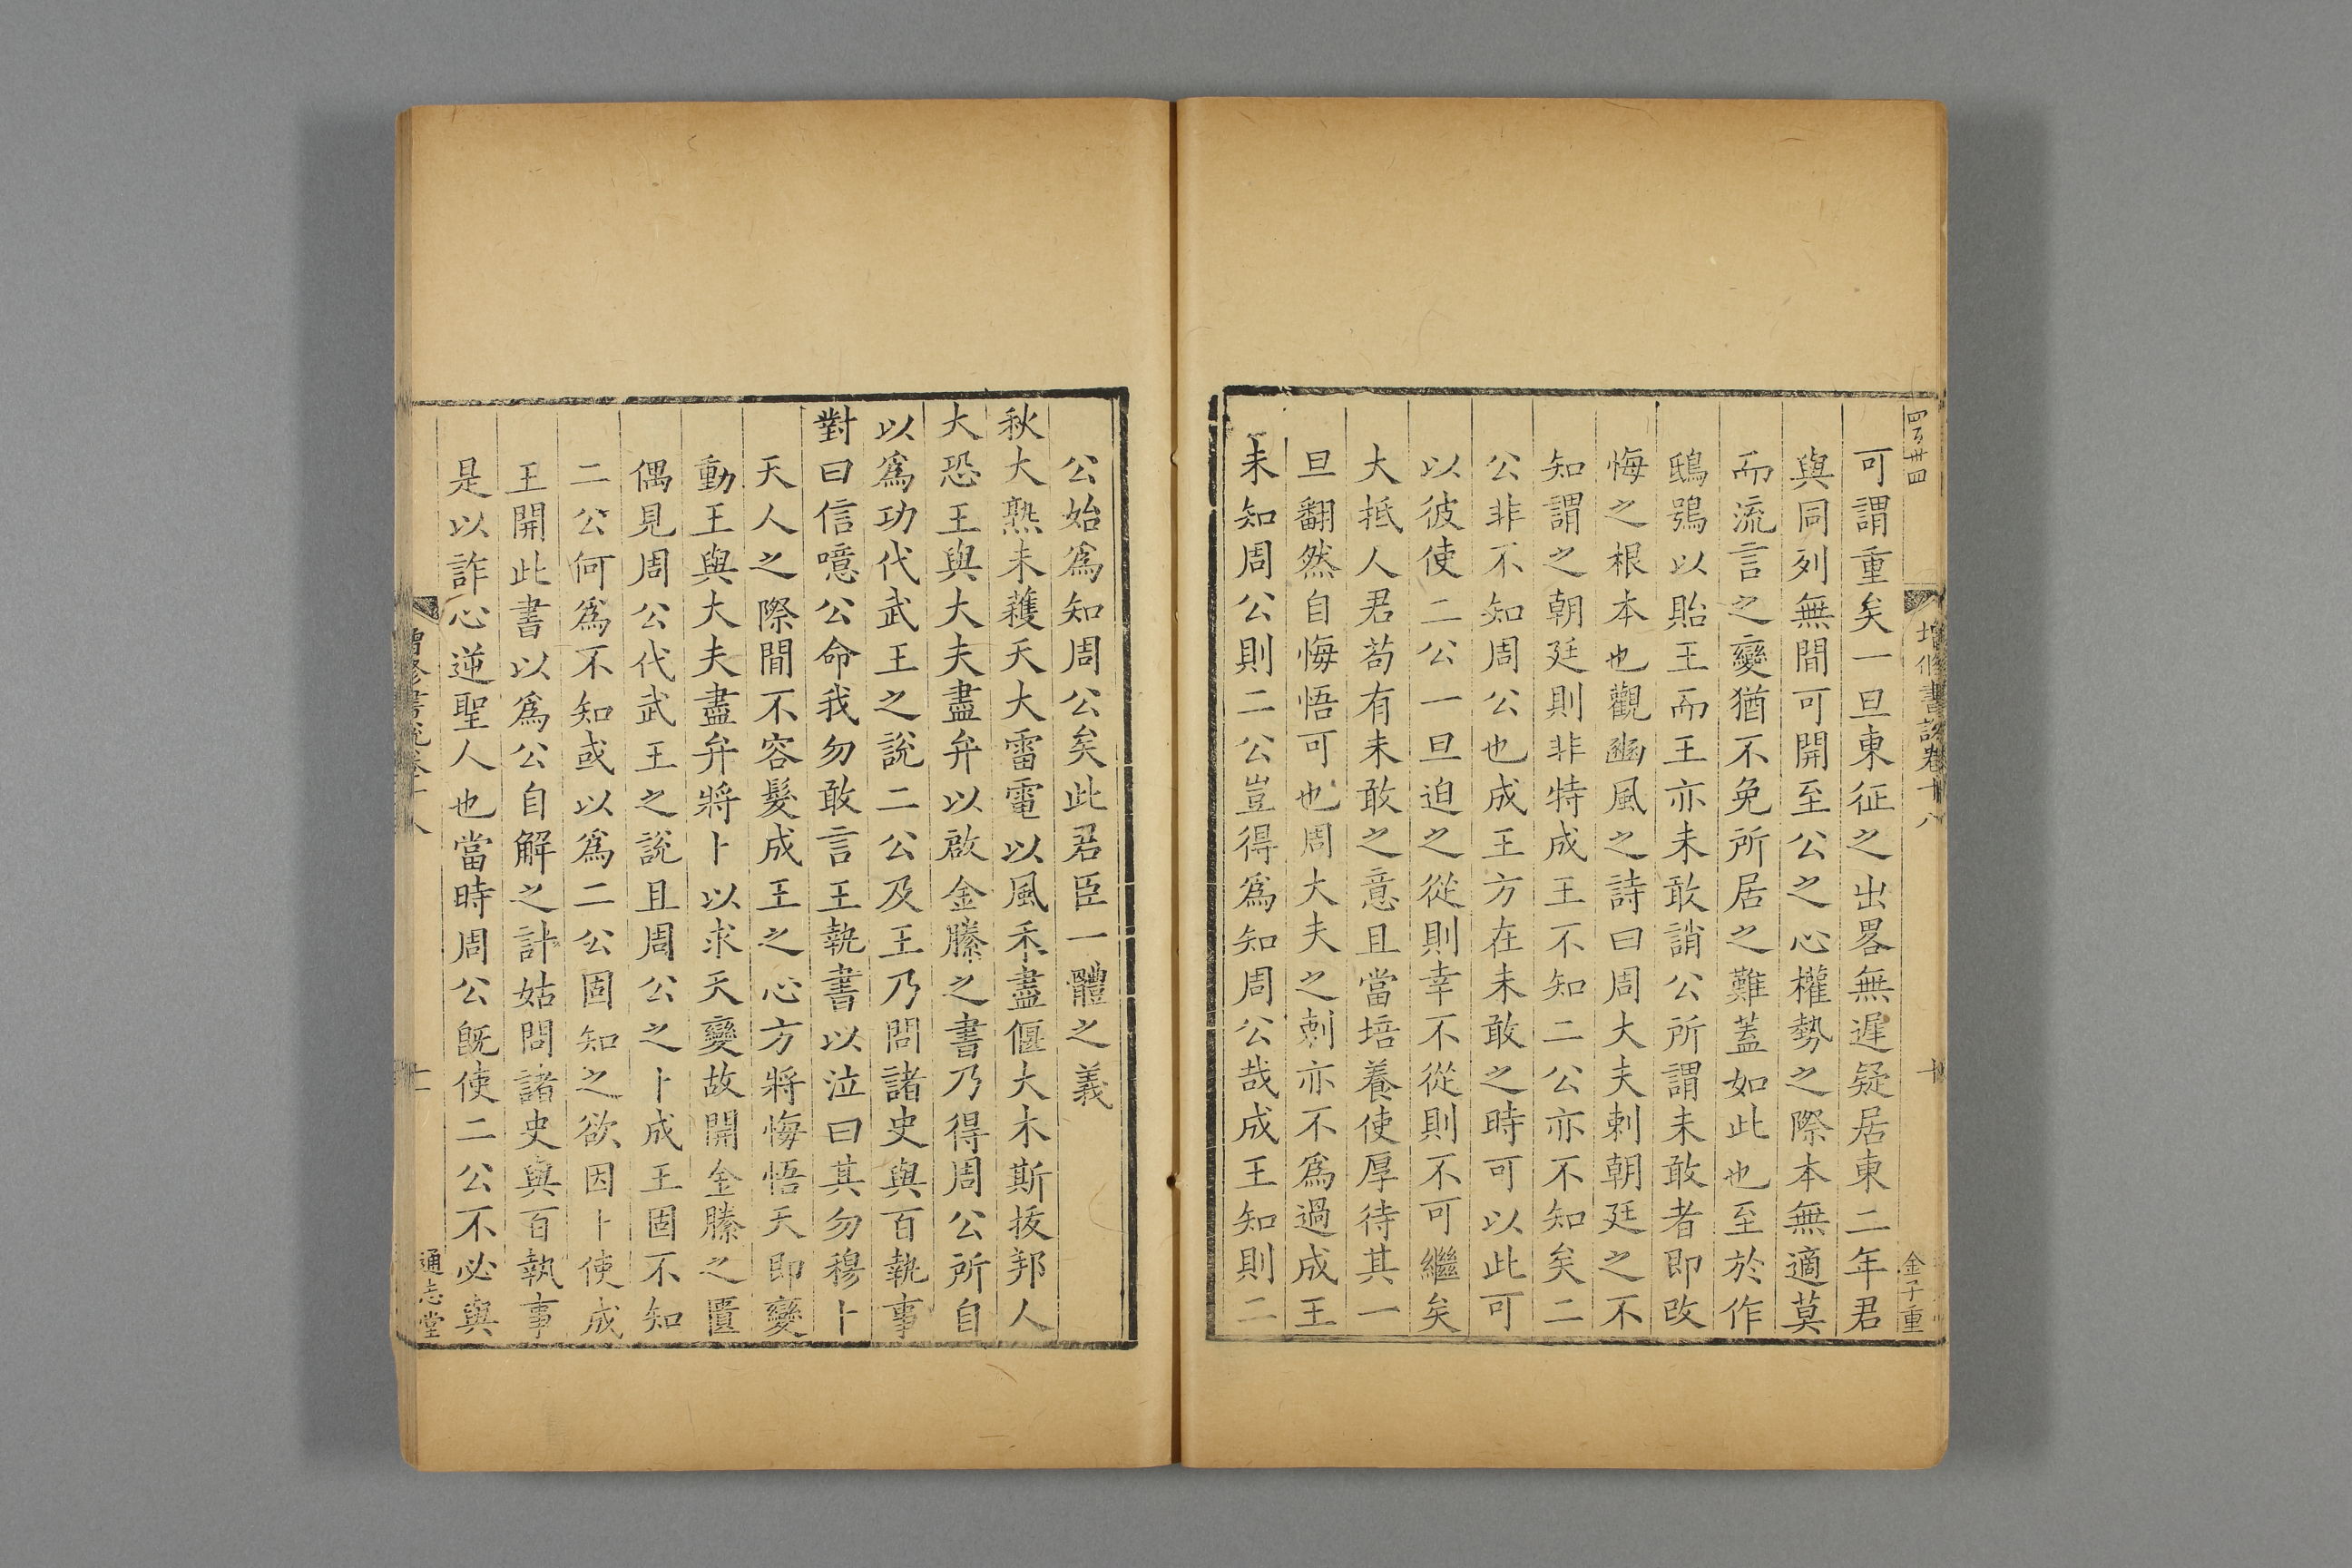 增修書說卷十八
十
金子重
可謂重矣一旦東征之出畧無遲疑居東二年君
與同列無間可開至公之心權勢之際本無適莫
而流言之變猶不免所居之難蓋如此也至於作
鴟鴞以貽王而王亦未敢誚公所謂未敢者即改
悔之根本也觀豳風之詩曰周大夫刺朝廷之不
知謂之朝廷則非特成王不知二公亦不知矣二
公非不知周公也成王方在未敢之時可以此可
以彼使二公一旦迫之從則幸不從則不可繼矣
大抵人君苟有未敢之意且當培養使厚待其一
旦翻然自悔悟可也周大夫之刺亦不爲過成王
未知周公則二公豈得爲知周公哉成王知則二
公始爲知周公矣此君臣一體之義
秋大熟未穫天大雷電以風禾盡偃大木斯拔邦人
大恐王與大夫盡弁以啟金縢之書乃得周公所自
以爲功代武王之說二公及王乃問諸史與百執事
對曰信噫公命我勿敢言王執書以泣曰其勿穆卜
天人之際間不容髮成王之心方將悔悟天即變
動王與大夫盡弁將卜以求天變故開金縢之匱
偶見周公代武王之說且周公之卜成王固不知
二公何爲不知或以爲二公固知之欲因卜使成
王開此書以爲公自解之計姑問諸史與百執事
是以詐心逆聖人也當時周公旣使二公不必與
增修書說卷十八
十一
通志堂